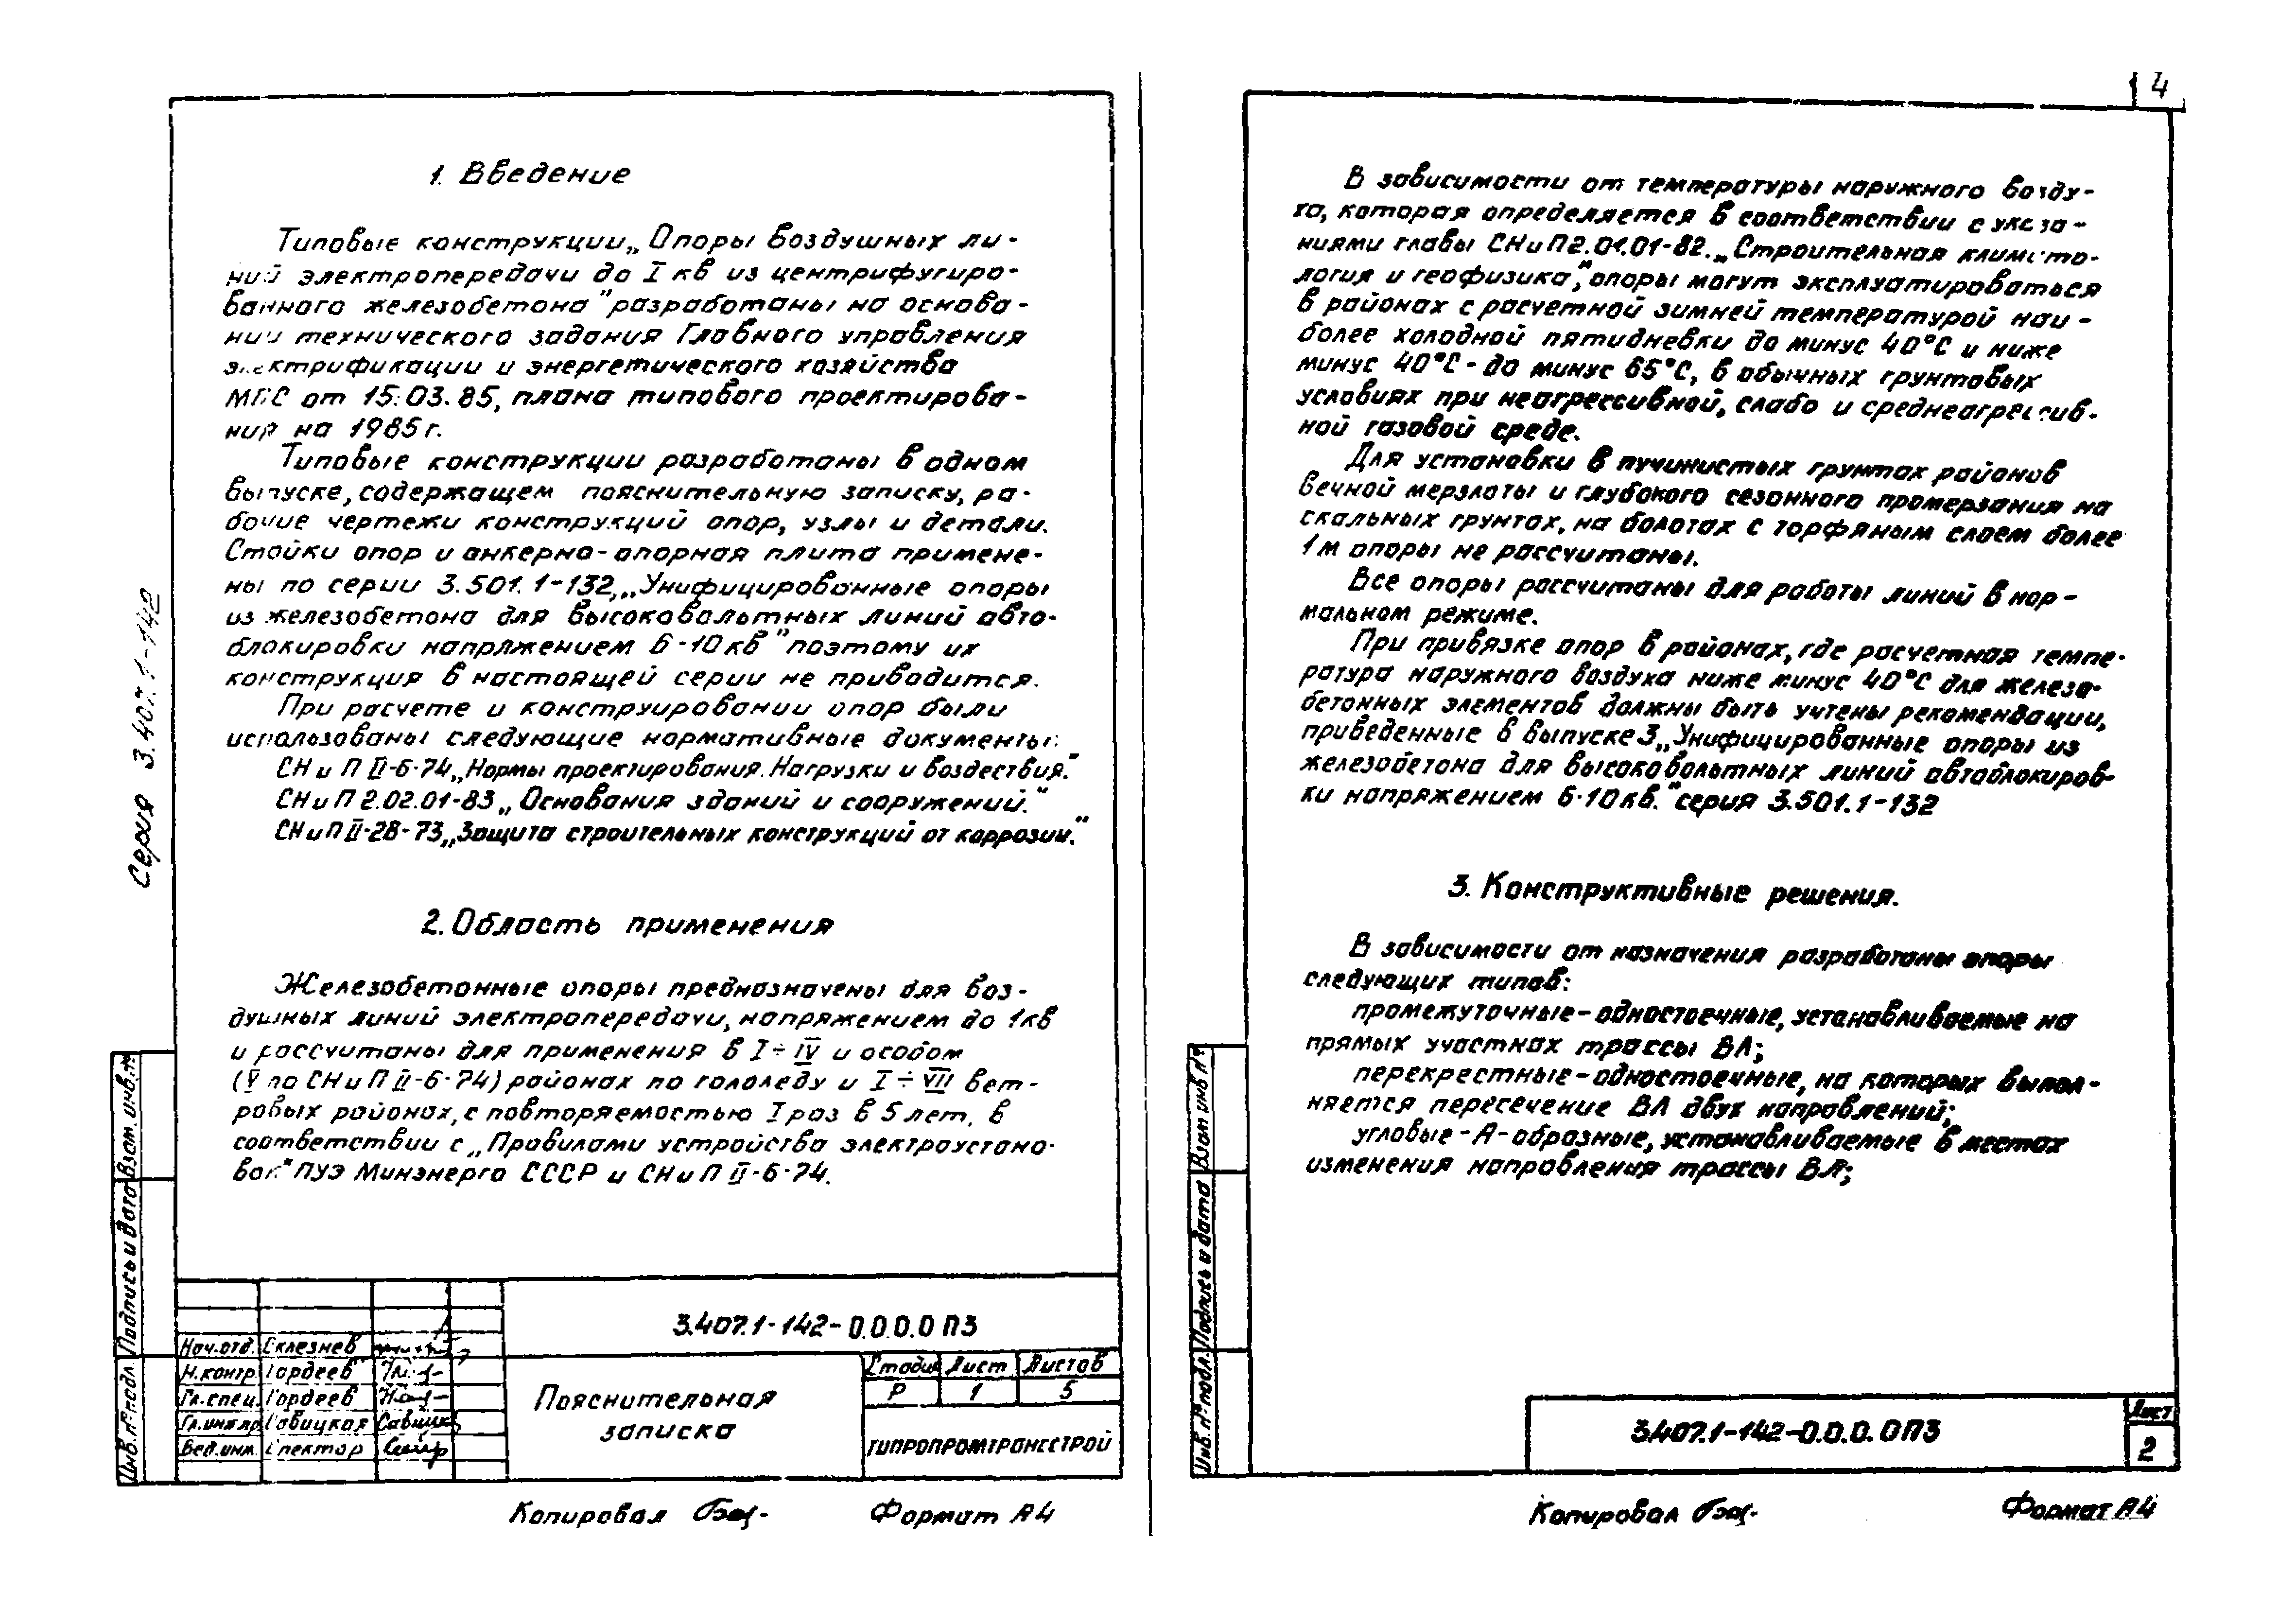 1. Введение
Типовые конструкции „Опоры воздушных ли-
ний электропередачи до I кв из центрифугиро-
ванного железобетона" разработаны на основа-
нии технического задания Главного управления
электрификации и энергетического хозяйства
МПС от 15.03.85, плана типового проектирова-
ния на 1985 г.
Типовые конструкции разработаны в одном
выпуске, содержащем пояснительную записку, ра-
бочие чертежи конструкций опор, узлы и детали.
Стойки опор и анкерно-опорная плита примене-
ны по серии 3.501.1-132 „Унифицированные опоры
из железобетона для высоковольтных линий авто-
блокировки напряжением 6-10кв" поэтому их
конструкция в настоящей серии не приводится.
При расчете и конструировании опор были
использованы следующие нормативные документы:
СНиП II-6-74 „Нормы проектирования. Нагрузки и воздествия."
СНиП 2.02.01-83 „Основания зданий и сооружений."
СНиП II-28-73 „Защита строительных конструкций от коррозии."
2. Область применения
Железобетонные опоры предназначены для воз-
душных линий электропередачи, напряжением до 1кв
и рассчитаны для применения в I÷IV и особом
(V по СНиП II-6-74) районах по гололеду и I÷VII вет-
ровых районах, с повторяемостью I раз в 5 лет, в
соответствии с „Правилами устройства электроустано-
вок" ПУЭ Минэнерго СССР и СНиП II-6-74.
Серия 3.407.1-142
Взам. инв.№
Подпись и дата
Инв.№ подл.
3.407.1-142-0.0.0.0 ПЗ
Нач.отд. Склезнев
Н.контр. Гордеев
Гл.спец. Гордеев
Гл.инж.пр Савицкая
Вед.инж. Спектор
Пояснительная
записка
Стадия Лист Листов
Р 1 5
ГИПРОПРОМТРАНССТРОЙ
Копировал
Формат А4
4
В зависимости от температуры наружного возду-
ха, которая определяется в соответствии с указа-
ниями главы СНиП 2.01.01-82. „Строительная климато-
логия и геофизика," опоры могут эксплуатироваться
в районах с расчетной зимней температурой наи-
более холодной пятидневки до минус 40°С и ниже
минус 40°С - до минус 65°С, в обычных грунтовых
условиях при неагрессивной, слабо и среднеагрессив-
ной газовой среде.
Для установки в пучинистых грунтах районов
вечной мерзлоты и глубокого сезонного промерзания на
скальных грунтах, на болотах с торфяным слоем более
1м опоры не рассчитаны.
Все опоры рассчитаны для работы линий в нор-
мальном режиме.
При привязке опор в районах, где расчетная темпе-
ратура наружного воздуха ниже минус 40°С для железо-
бетонных элементов должны быть учтены рекомендации,
приведенные в выпуске 3 „Унифицированные опоры из
железобетона для высоковольтных линий автоблокиров-
ки напряжением 6-10кв." серия 3.501.1-132
3. Конструктивные решения.
В зависимости от назначения разработаны опоры
следующих типов:
промежуточные - одностоечные, устанавливаемые на
прямых участках трассы ВЛ;
перекрестные - одностоечные, на которых выпол-
няется пересечение ВЛ двух направлений;
угловые - А-образные, устанавливаемые в местах
изменения направления трассы ВЛ;
Взам инв №
Подпись и дата
Инв.№ подл.
3.407.1-142-0.0.0.0 ПЗ
Лист
2
Копировал
Формат А4